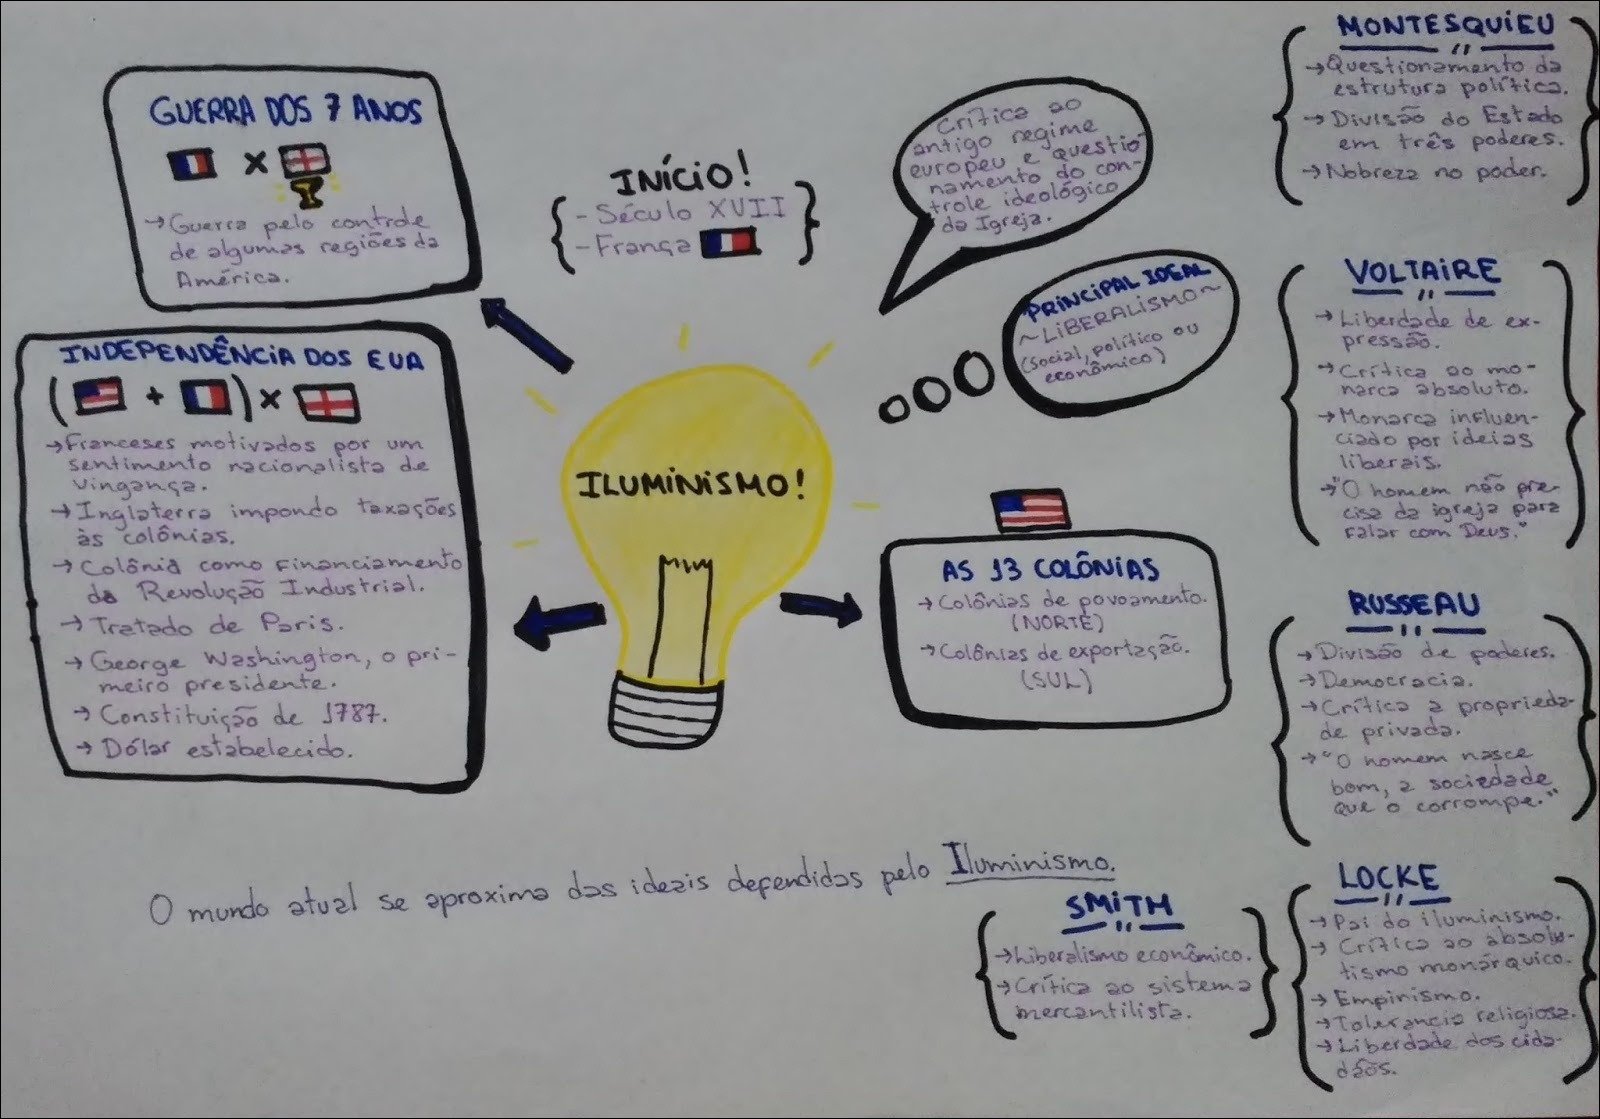 GUERRA DOS 7 ANOS
X
→Guerra pelo controle
de algumas regiões da
América.
INÍCIO!
- Século XVII
- França
Crítica ao
antigo regime
europeu e questio
namento do con-
trole ideológico
da Igreja.
PRINCIPAL IDEAL
~LIBERALISMO~
(social, político ou
econômico)
INDEPENDÊNCIA DOS EUA
( + ) X
→Franceses motivados por um
sentimento nacionalista de
vingança.
→Inglaterra impondo taxações
às colônias.
→Colônia como financiamento
da Revolução Industrial.
→Tratado de Paris.
→George Washington, o pri-
meiro presidente.
→Constituição de 1787.
→Dólar estabelecido.
ILUMINISMO!
AS 13 COLÔNIAS
→Colônias de povoamento.
(NORTE)
→Colônias de exportação.
(SUL)
O mundo atual se aproxima das ideais defendidas pelo Iluminismo.
MONTESQUIEU
→Questionamento da
estrutura política.
→Divisão do Estado
em três poderes.
→Nobreza no poder.
VOLTAIRE
→Liberdade de ex-
pressão.
→Crítica ao mo-
narca absoluto.
→Monarca influen-
ciado por ideias
liberais.
→"O homem não pre-
cisa da igreja para
falar com Deus."
RUSSEAU
→Divisão de poderes.
→Democracia.
→Crítica a proprieda-
de privada.
→"O homem nasce
bom, a sociedade
que o corrompe."
SMITH
→Liberalismo econômico.
→Crítica ao sistema
mercantilista.
LOCKE
→Pai do iluminismo.
→Crítica ao absolu-
tismo monárquico.
→Empirismo.
→Tolerancia religiosa.
→Liberdade dos cida-
dãos.